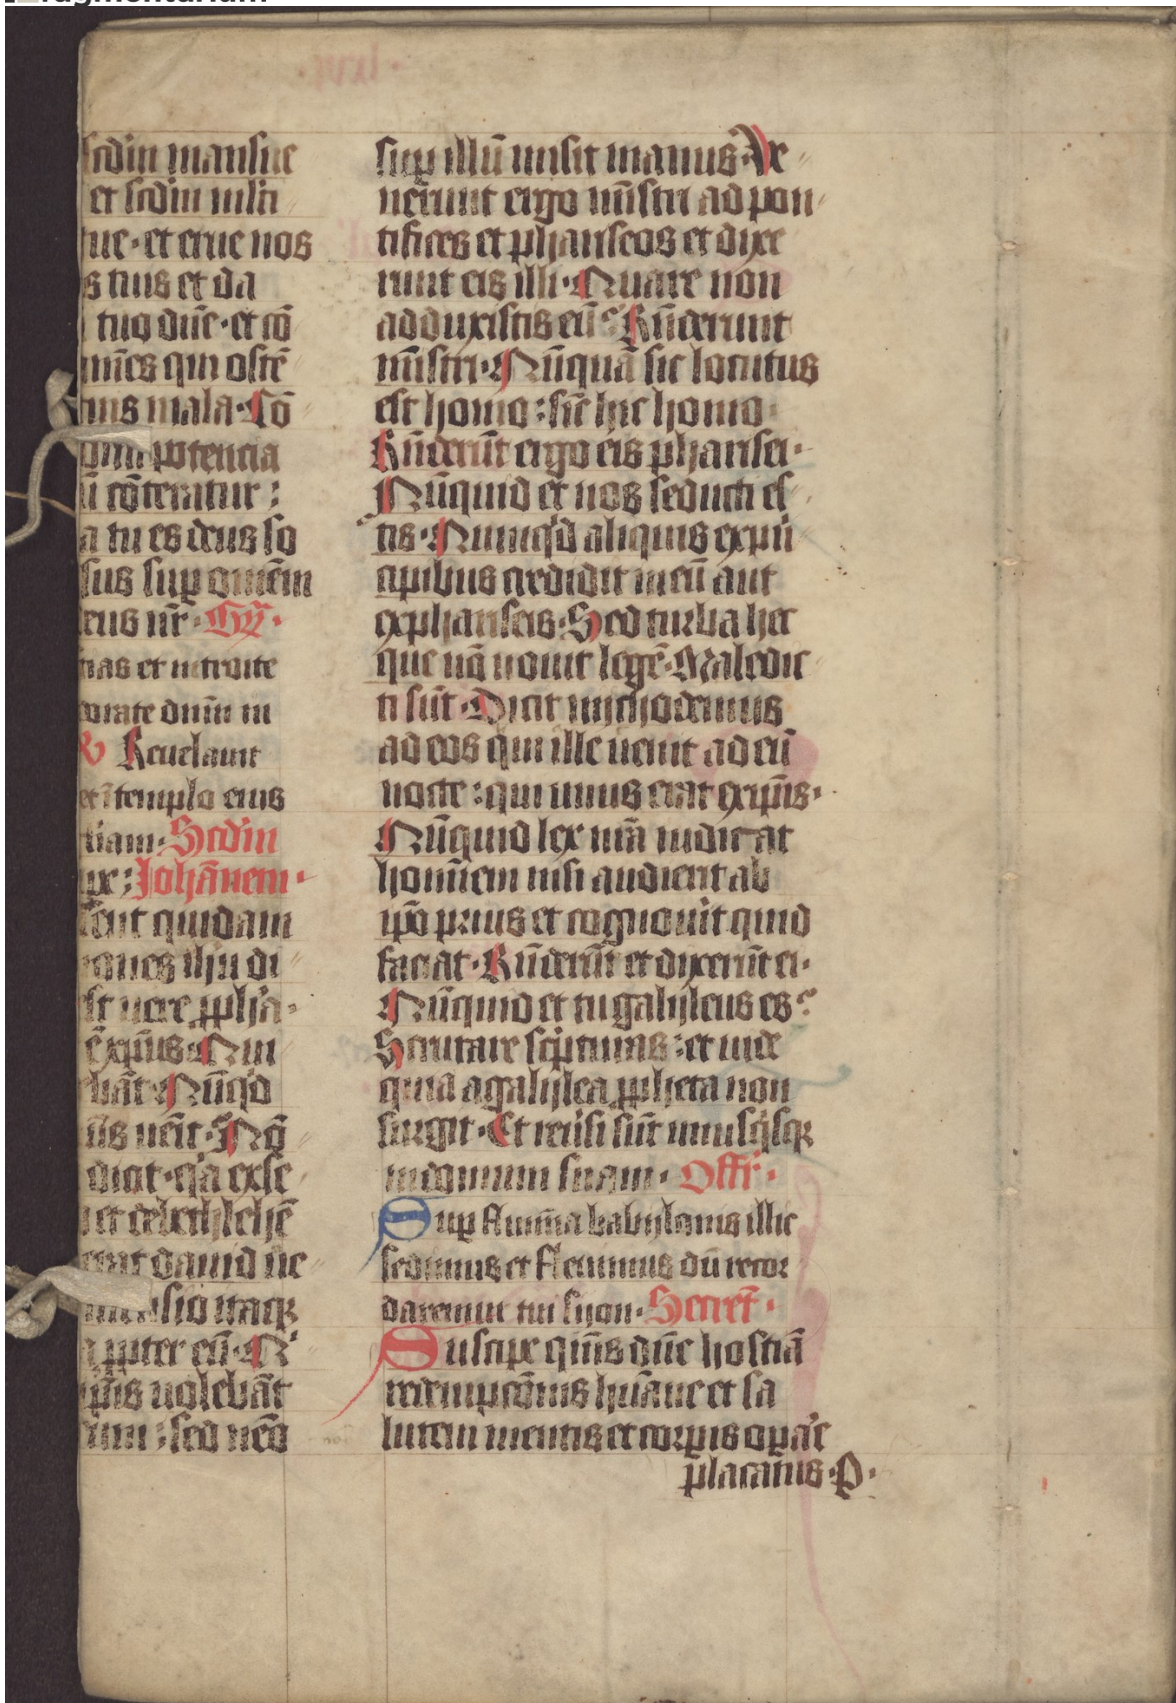 scdm mansue
et scdm mlti
tue · et erue nos
s tuis et da
tuo dn̄e · et cō
mn̄es qui ostē
tuis mala · Cō
omni potencia
ū cōteratur :
a tu es deus so
sus sup omnem
eus nr̄ · Gr̄ ·
nas et introite
orate dnm̄ in
Reuelauit
et ī templo eius
tiam · Scdm
pe : Johānem ·
erūt quidam
ones ihu di
st uere ppha ·
ē xpūs · Qui
ebāt · Nūqd
us uēit · Nō
dicit · qa ex se
et de bethlehē
erat dauid ue
nsio itaq
a ppter eū · Q
ipīs uolebāt
eum : sed nēo
sup illū misit manus · Ve
nerunt ergo mīstri ad pon
tifices et phariseos et dixe
runt eis illi · Quare non
adduxistis eū? Rn̄derunt
mīstri · Nūquā sic locutus
est homo : sic̄ hic homo ·
Rn̄derūt ergo eis pharisei ·
Nūquid et nos seducti es
tis · Numqd aliquis ex pn̄
cipibus credidit in eū aut
ex phariseis · Sed turba hec
que nō nouit legē · Maledic
ti sūt · Dicit nychodemus
ad eos qui ille uenit ad eū
nocte : qui unus erat ex ipīs ·
Nūquid lex nrā iudicat
hominem nisi audierit ab
ipō prius et cognouit quid
faciat · Rn̄derūt et dixerūt ei ·
Nūquid et tu galyleus es?
Scrutare scripturas : et uide
quia a galylea ppheta non
surgit · Et reūsi sūt unusqsq
in domum suam · Offr̄ ·
Sup flumīa babylonis illic
sedimus et fleuimus dū recor
daremur tui syon · Secret ·
Suscipe qn̄s dn̄e hostiā
redempcōnis hūane et sa
lutem mentis et corpis opar̄e
placatus · P ·